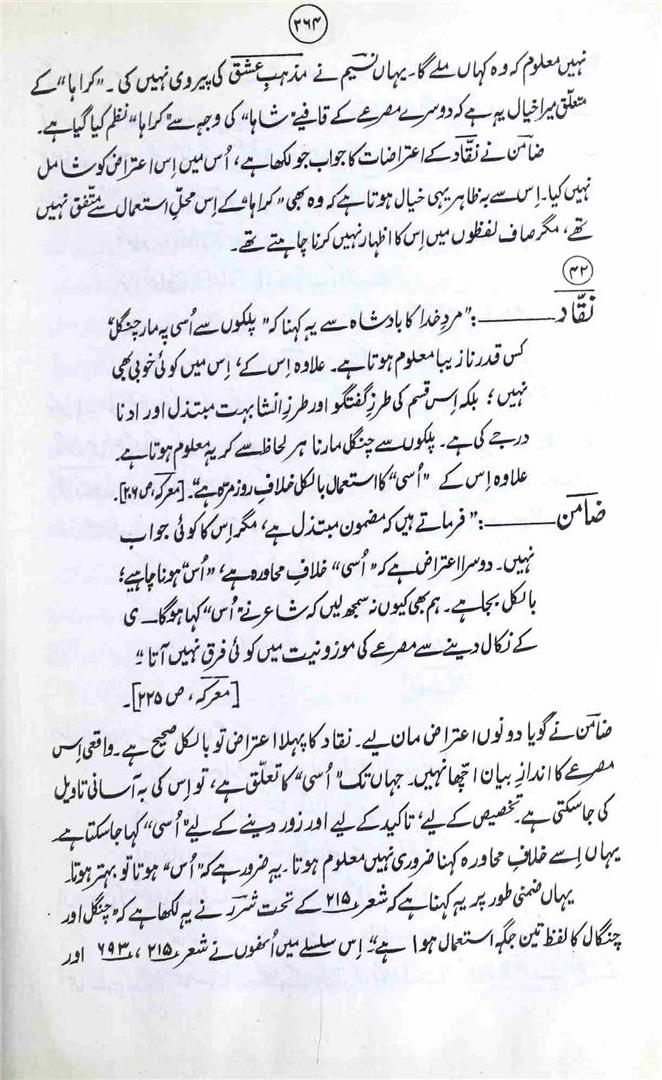 ۲۶۴
نہیں معلوم کہ وہ کہاں ملے گا۔ یہاں نسیم نے مذہبِ عشق کی پیروی نہیں کی۔ "کراہا" کے
متعلق میرا خیال یہ ہے کہ دوسرے مصرعے کے قافیے "شاہا" کی وجہ سے "کراہا" نظم کیا گیا ہے۔
ضامن نے نقّاد کے اعتراضات کا جواب جو لکھا ہے، اُس میں اِس اعتراض کو شامل
نہیں کیا۔ اِس سے بہ ظاہر یہی خیال ہوتا ہے کہ وہ بھی "کراہا" کے اِس محلِّ استعمال سے متّفق نہیں
تھے، مگر صاف لفظوں میں اِس کا اظہار نہیں کرنا چاہتے تھے۔
۴۲
نقّاد ــــــــ: "مردِ خدا کا بادشاہ سے یہ کہنا کہ "پلکوں سے اُسی پہ مار چنگل"
کس قدر نازیبا معلوم ہوتا ہے۔ علاوہ اِس کے، اِس میں کوئی خوبی بھی
نہیں؛ بلکہ اِس قسم کی طرزِ گفتگو اور طرزِ انشا بہت مبتذل اور ادنا
درجے کی ہے۔ پلکوں سے چنگل مارنا ہر لحاظ سے کریہ معلوم ہوتا ہے
علاوہ اِس کے "اُسی" کا استعمال بالکل خلافِ روزمرّہ ہے"۔ [معرکہ، ص ۲۸۶]۔
ضامن ــــــــ: "فرماتے ہیں کہ مضمون مبتذل ہے، مگر اِس کا کوئی جواب
نہیں۔ دوسرا اعتراض ہے کہ "اُسی" خلافِ محاورہ ہے، "اُس" ہونا چاہیے؛
بالکل بجا ہے۔ ہم بھی کیوں نہ سمجھ لیں کہ شاعر نے "اُس" کہا ہوگا۔ ی
کے نکال دینے سے مصرعے کی موزونیت میں کوئی فرق نہیں آتا"
[معرکہ، ص ۲۲۵]۔
ضامن نے گویا دونوں اعتراض مان لیے۔ نقاد کا پہلا اعتراض تو بالکل صحیح ہے۔ واقعی اِس
مصرعے کا اندازِ بیان اچّھا نہیں۔ جہاں تک "اُسی" کا تعلّق ہے، تو اِس کی بہ آسانی تاویل
کی جاسکتی ہے۔ تخصیص کے لیے، تاکید کے لیے اور زور دینے کے لیے "اُسی" کہا جاسکتا ہے۔
یہاں اِسے خلافِ محاورہ کہنا ضروری نہیں معلوم ہوتا۔ یہ ضرور ہے کہ "اُس" ہوتا تو بہتر ہوتا۔
یہاں ضمنی طور پر یہ کہنا ہے کہ شعر ۲۱۵ کے تحت شرر نے یہ لکھا ہے کہ "چنگل اور
چنگال کا لفظ تین جگہ استعمال ہوا ہے"۔ اِس سلسلے میں اُنھوں نے شعر ۲۱۵، ۶۹۳ اور